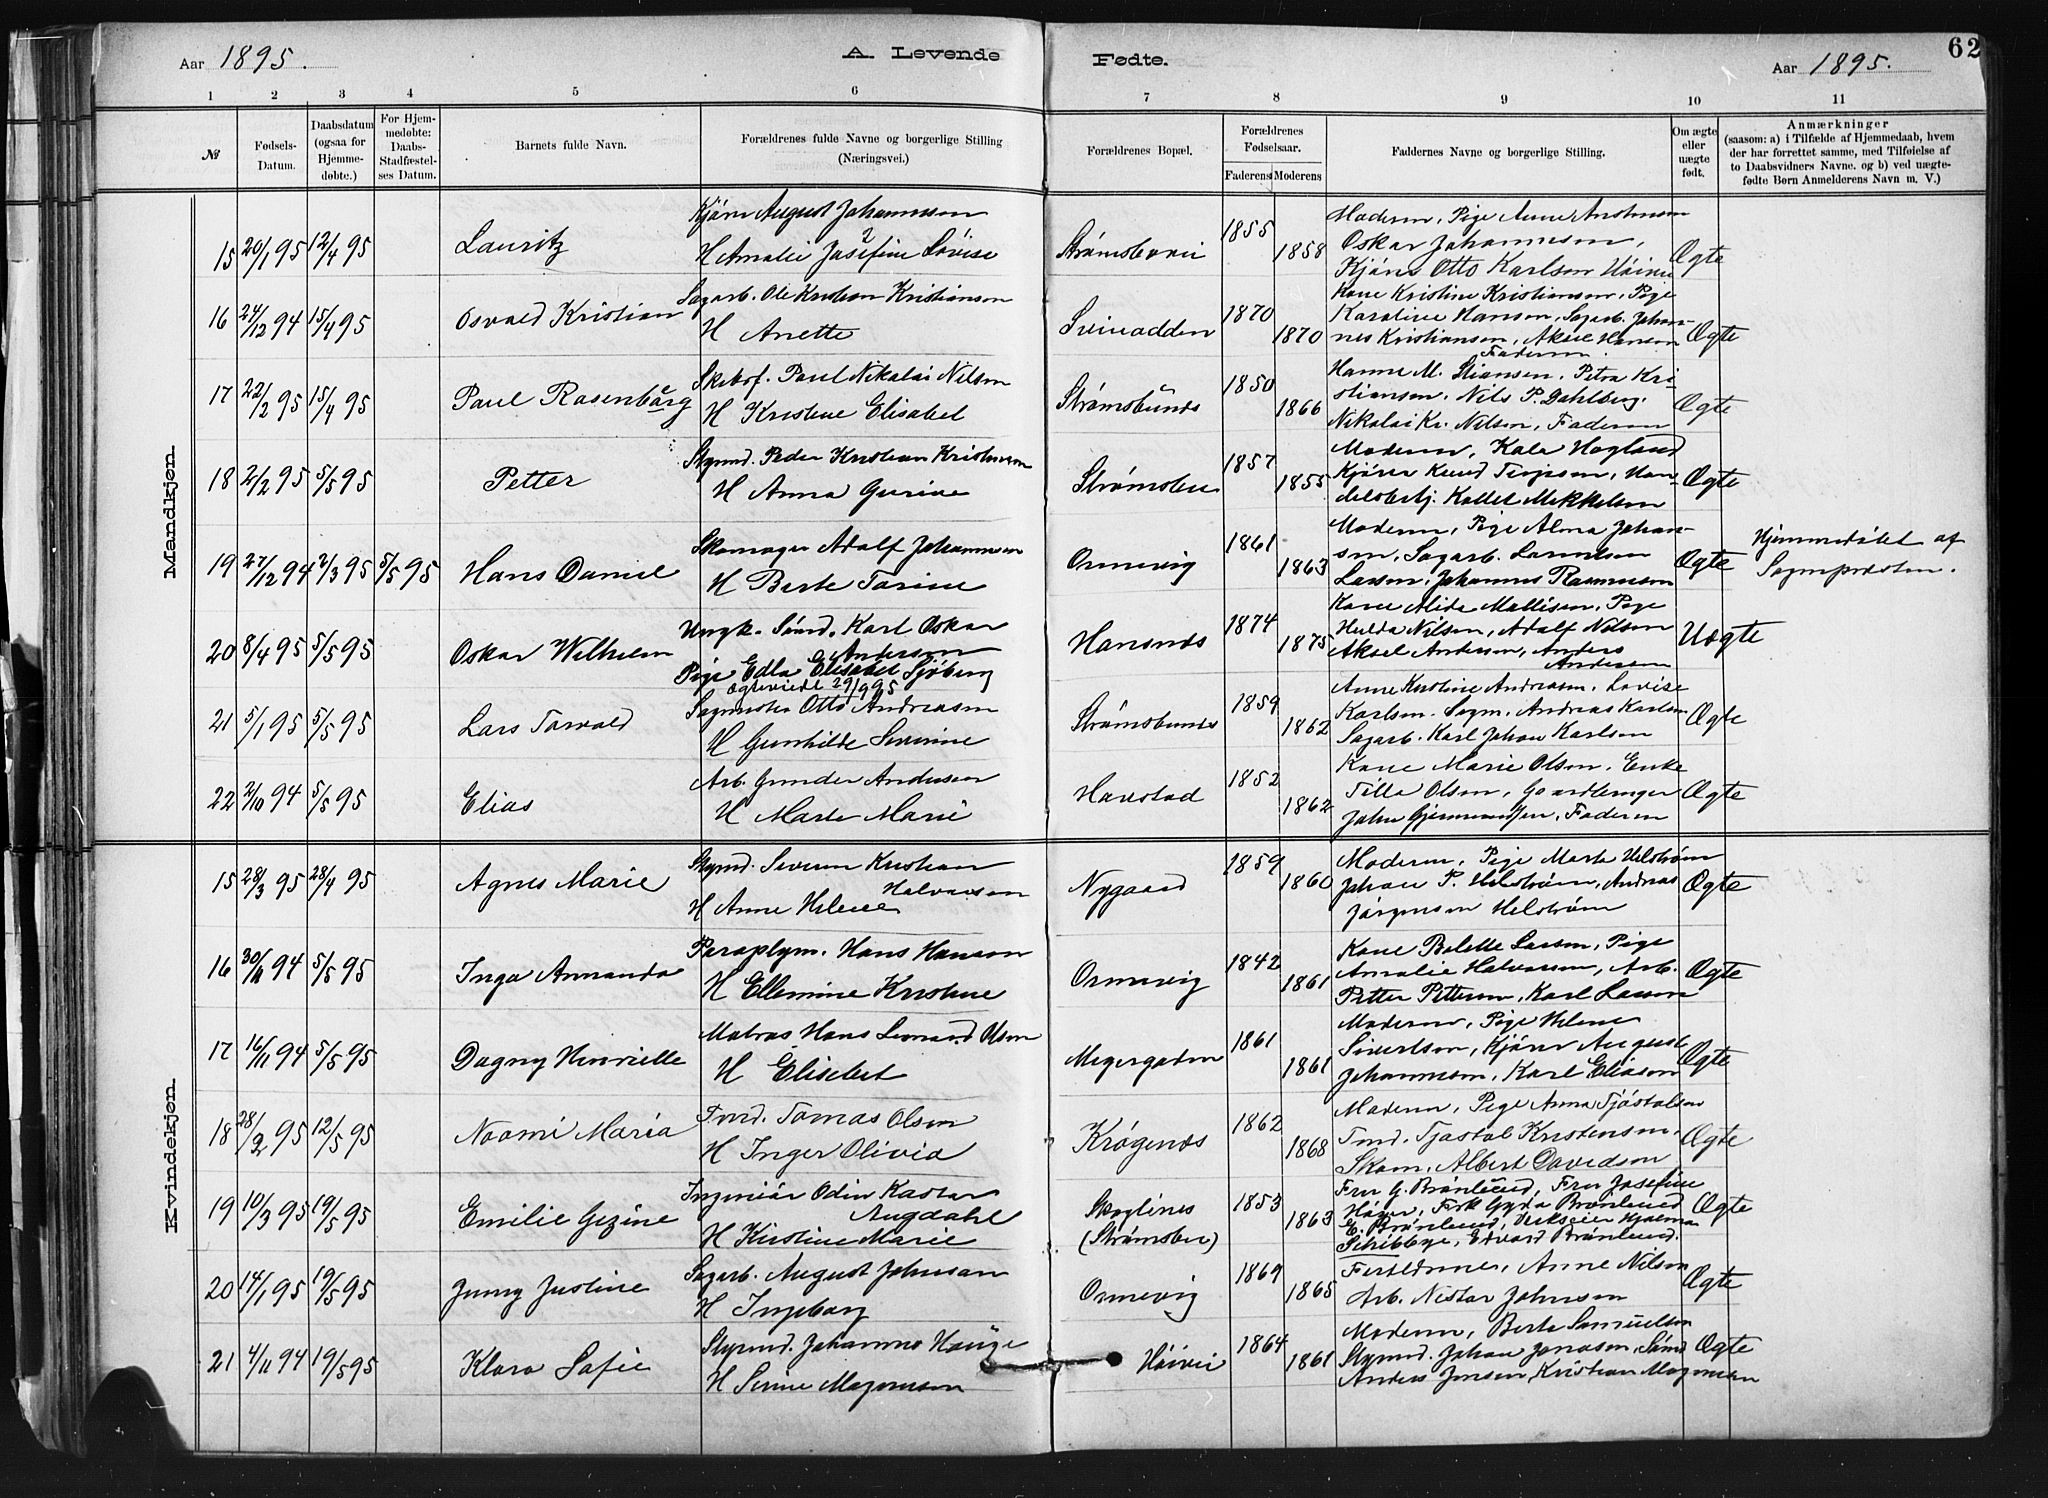 Aar 1895. A. Levende Fødte. Aar 1895. 62
1 2 3 4 5 6 7 8 9 10 11
№ Fødsels-Datum. Daabsdatum (ogsaa for Hjemmedøbte.) For Hjemmedøbte: Daabs-Stadfæstelses Datum. Barnets fulde Navn. Forældrenes fulde Navne og borgerlige Stilling (Næringsvei.) Forældrenes Bopæl. Forældrenes Fødselsaar. Faderens Moderens Faddernes Navne og borgerlige Stilling. Om ægte eller uægte født. Anmærkninger (saasom: a) i Tilfælde af Hjemmedaab, hvem der har forrettet samme, med Tilføielse af to Daabsvidners Navne. og b) ved uægtefødte Børn Anmelderens Navn m. V.)
Mandkjøn.
Kjørm August Johannesen 1855 Moderen, Pige Anne
15 20/1 95 12/4 95 Lauritz H Amalie Josefine Lovise 1858 Oskar Johannesen, Ægte
Kjørm Otto Karlsen
Sagarb. Ole Kristian Kristiansen 1870 Kone Kristine Kristiansen, Pige
16 24/12 94 15/4 95 Osvald Kristian H Anette Svinodden 1870 Karoline Hansen, Sagarb. Johan- Ægte
nes Kristiansen, Aksel Hansen
Faderen.
Skibsf. Paul Nikolai Nilsen 1850 Hanne M. Stiansen, Petra Kri-
17 22/2 95 15/4 95 Paul Rosenbärg H Kristine Elisabet Strømsbunes 1866 stiansen, Nils P. Dahlberg, Ægte
Nikolai Kr. Nilsen, Faderen
Styrmd. Peder Kristian Kristensen 1857 Moderen, Kala Hogland
18 2/2 95 5/5 95 Petter H Anna Gurine Strømsbu 1855 Kjører Knud Terjesen, Han- Ægte
delsbestj. Kallet Mikkelsen
Skomager Adolf Johannesen 1861 Moderen, Pige Alma Johan-
19 27/12 94 2/3 95 5/5 95 Hans Daniel H Berte Tarine Ormevig 1863 sen, Sagarb. Ægte Hjemmedøbt af
Larsen, Johannes Rasmussen Sognepræsten.
Ungk. Sömd. Karl Oskar 1874 Kone Alida Mallisen, Pige
20 8/4 95 5/5 95 Oskar Wilhelm Andersen Hansnæs 1875 Hulda Nilsen, Adolf Nilsen Uægte
Pige Edla Elisabet Sjöberg Aksel Andersen, Anders
Ægteviedt 29/9 95 Andersen
Sagmester Otto Andreasen 1859 Anne Kristine Andreasen, Lovise
21 5/1 95 5/5 95 Lars Torvald H Gunhilde Severine Strømsbunes 1862 Karlsen. Sagm. Andreas Karlsen Ægte
Sagarb. Karl Johan Karlsen
Arb. Gunder Andersen 1852 Kone Marie Olsen, Enke
22 2/10 94 5/5 95 Elias H Marte Marie Havstad 1862 Tilla Olsen, Gaardbruger Ægte
John Gjermundsen, Faderen
Kvindekjøn.
Styrmd. Severin Kristian 1859 Moderen, Pige Marte Helström
15 28/3 95 28/4 95 Agnes Marie Halvorsen Nygaard 1860 Johan P. Helström, Andreas Ægte
H Anne Helene Jörgensen Helström
Paraplym. Hans Hansen 1842 Kone Bolette Larsen, Pige
16 30/11 94 5/5 95 Inga Annanda H Ellemine Kristine Ormevig 1861 Amalie Halvorsen, Arb. Ægte
Petter Pettersen, Karl Larsen
Matros Hans Leonard Olsen 1861 Moderen, Pige Helene
17 16/11 94 5/5 95 Dagny Henriette H Elisabet Megergarden 1861 Sivertsen, Kjører August Ægte
Johannesen, Karl Eliasen
Tmd. Tomas Olsen 1862 Moderen, Pige Anna Tjöstolsen
18 28/2 95 12/5 95 Noomi Maria H Inger Olivia Krøgenæs 1868 Tmd. Tjostol Kristensen, Ægte
Skom. Albert Davidsen
Ingeniör Odin Kastor 1853 Fru G. Brönlund, Fru Josefine
19 10/3 95 19/5 95 Emilie Gezine Augdahl Skoglines 1863 Höyer, Frk Gyda Brönlund Ægte
H Kirstine Marie (Strømsbu) E. Brönlund, Verkseier Hjalmar
Schibbye, Edvard Brönlund.
Sagarb. August Johnsen 1869 Forældrene, Anne Nilsen
20 14/1 95 19/5 95 Jenny Justine H Ingeborg Ormevig 1865 Arb. Nestor Johnsen Ægte
Styrmd. Johannes Hauge 1864 Moderen, Berte Samuelsen
21 4/11 94 19/5 95 Klara Sofie H Serine Mogensen Høivei 1861 Styrmd. Johan Jonassen, Sömd. Ægte
Anders Jensen, Kristian Mogensen